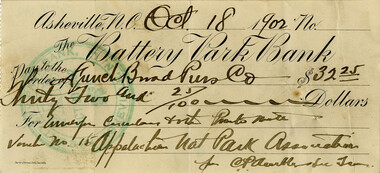 Asheville, N.C. Oct. 18 1902 No.
The Battery Park Bank
Pay to the
order of French Broad Press Co $32 25
Thirty Two and 25/100 Dollars
For Envelopes Circulars
Vouch No. 15 Appalachian Nat Park Association
for